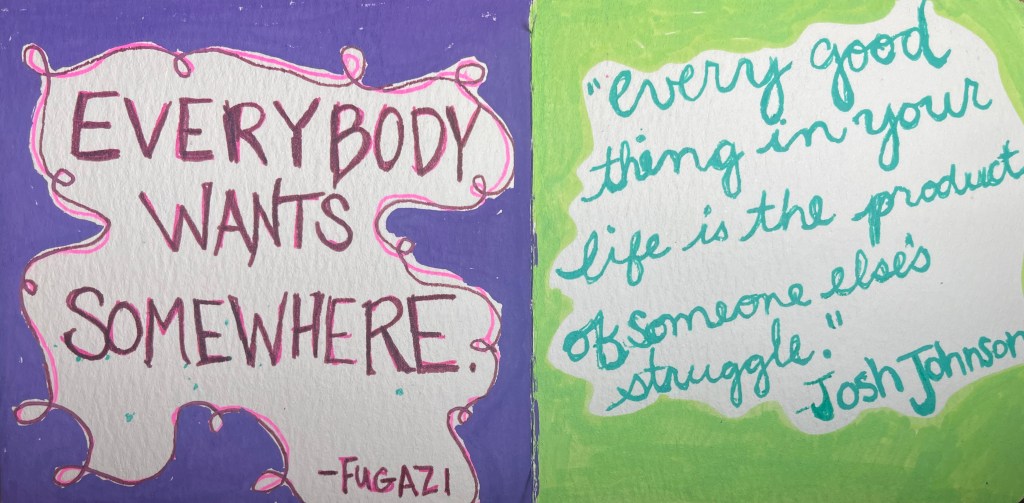 EVERYBODY
WANTS
SOMEWHERE.
-FUGAZI
"every good
thing in your
life is the product
of someone else's
struggle."
-Josh Johnson